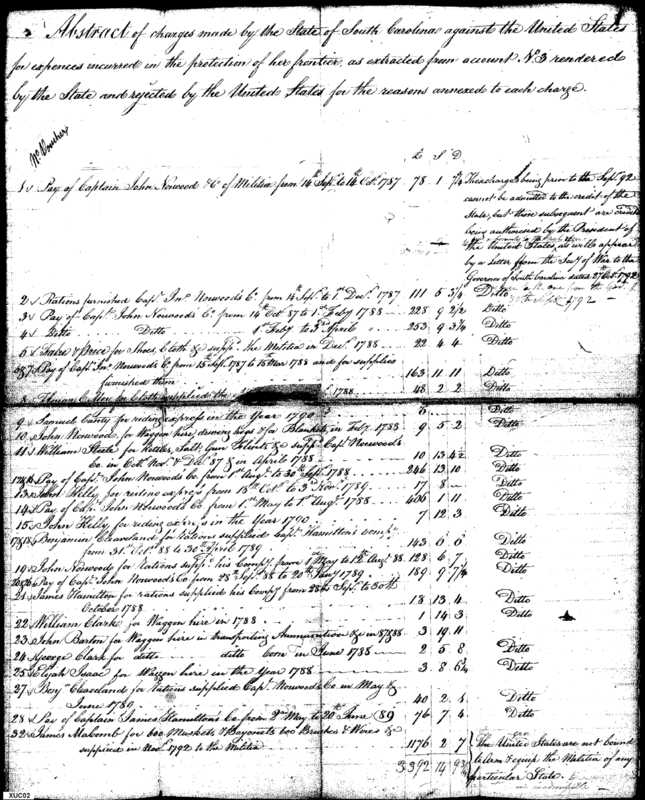 Abstract of charges made by the State of South Carolina against the United States
for expences incurred in the protection of her frontier, as extracted from account No. 3 rendered
by the State and rejected by the United States for the reasons annexed to each charge.
No. Voucher
£ S D
1 Pay of Captain John Norwood & Co of Militia from 14th Sept. to 14th Octr. 1787 78 1 7/4 These charges being prior to the Septr. 92
cannot be admitted to the credit of the
State, but those subsequent are
being authorised by the President of
the United States, as will appear
by a Letter from the Secy of War to the
Governor of South Carolina dated 27 Oct. 1792
2 Rations furnished Capt. Jno. Norwood's Co. from 14 Sept. to 1st Decr. 1787 111 5 3/4 Ditto
3 Pay of Capt. John Norwood's Co. from 14 Oct 87 to 1st Feby 1788 228 9 2/2 Ditto
4 Ditto Ditto 1st Feby to 3d April " 253 9 3/4 Ditto
5 & Price for Shoes, Cloth & supp. the Militia in Decr. 1788 22 4 4 Ditto
Pay of Capt. Jno. Norwood's Co. from 15th Sept. 1787 to 15th Mar 1788 and for supplies
furnished them 163 11 11 Ditto
8 Cloth supplied the 1788 48 2 2 Ditto
9 Samuel Canty for riding express in the Year 1790 Ditto
10 John Norwood, for Waggon hire, driving hogs & for Blankets, in Feby. 1788 9 5 2 Ditto
11 William State for Kettles, Salt, Gun Flints & supp. Capt. Norwood's
Co. in Octr. Novr. & Decr. 87 & in April 1788 10 13 4/2 Ditto
Pay of Capt. John Norwood's Co. from 1st Augt. to 30th Sept. 1788 246 13 10 Ditto
13 John Kelly for riding express from 18th Octr. to 3d Novr. 1789 17 8 — Ditto
14 Pay of Cap. John Norwood's Co. from 1st May to 1st Augt. 1788 406 1 11 Ditto
15 John Kelly for riding express in the Year 1790 7 12 3 Ditto
Benjamin Cleaveland for Rations supplied Capt. Hamilton's Compy.
from 31. Octr. 88 to 30th April 1789 143 6 6 Ditto
19 John Norwood for Rations supp. his Compy. from 1st May to 12th Augt. 88 128 6 7 Ditto
Pay of Capt. John Norwood's Co. from 28th Sept. 88 to 20th Jany 1789 189 9 7/4 Ditto
21 James Hamilton for rations supplied his Compy. from 28th Sept. to 30th
October 1788 18 13 4 Ditto
22 William Clarke for Waggon hire in 1788 1 14 3 Ditto
23 John Barton for Waggon hire in transporting Ammunition &c in 87 & 88 3 19 11 Ditto
24 George Clark for ditto ditto Corn in June 1788 2 5 8 Ditto
25 Elijah Isaac for Waggon hire in the Year 1788 3 8 6/4 Ditto
27 Benj. Cleaveland for Rations supplied Capt. Norwoods Co in May &
June 1780 40 2 1 Ditto
28 Pay of Captain James Hamilton's Co from 2nd May to 20th June 89 76 7 4 Ditto
32 James Makomb for 600 Muskets & Bayonets 600 Brushes & Wires &
supplied in Novr. 1792 to the Militia 1176 2 7 The United States are not bound
to Arm & equip the Militia of any
particular State.
3392 14 9 3/4
XUC02